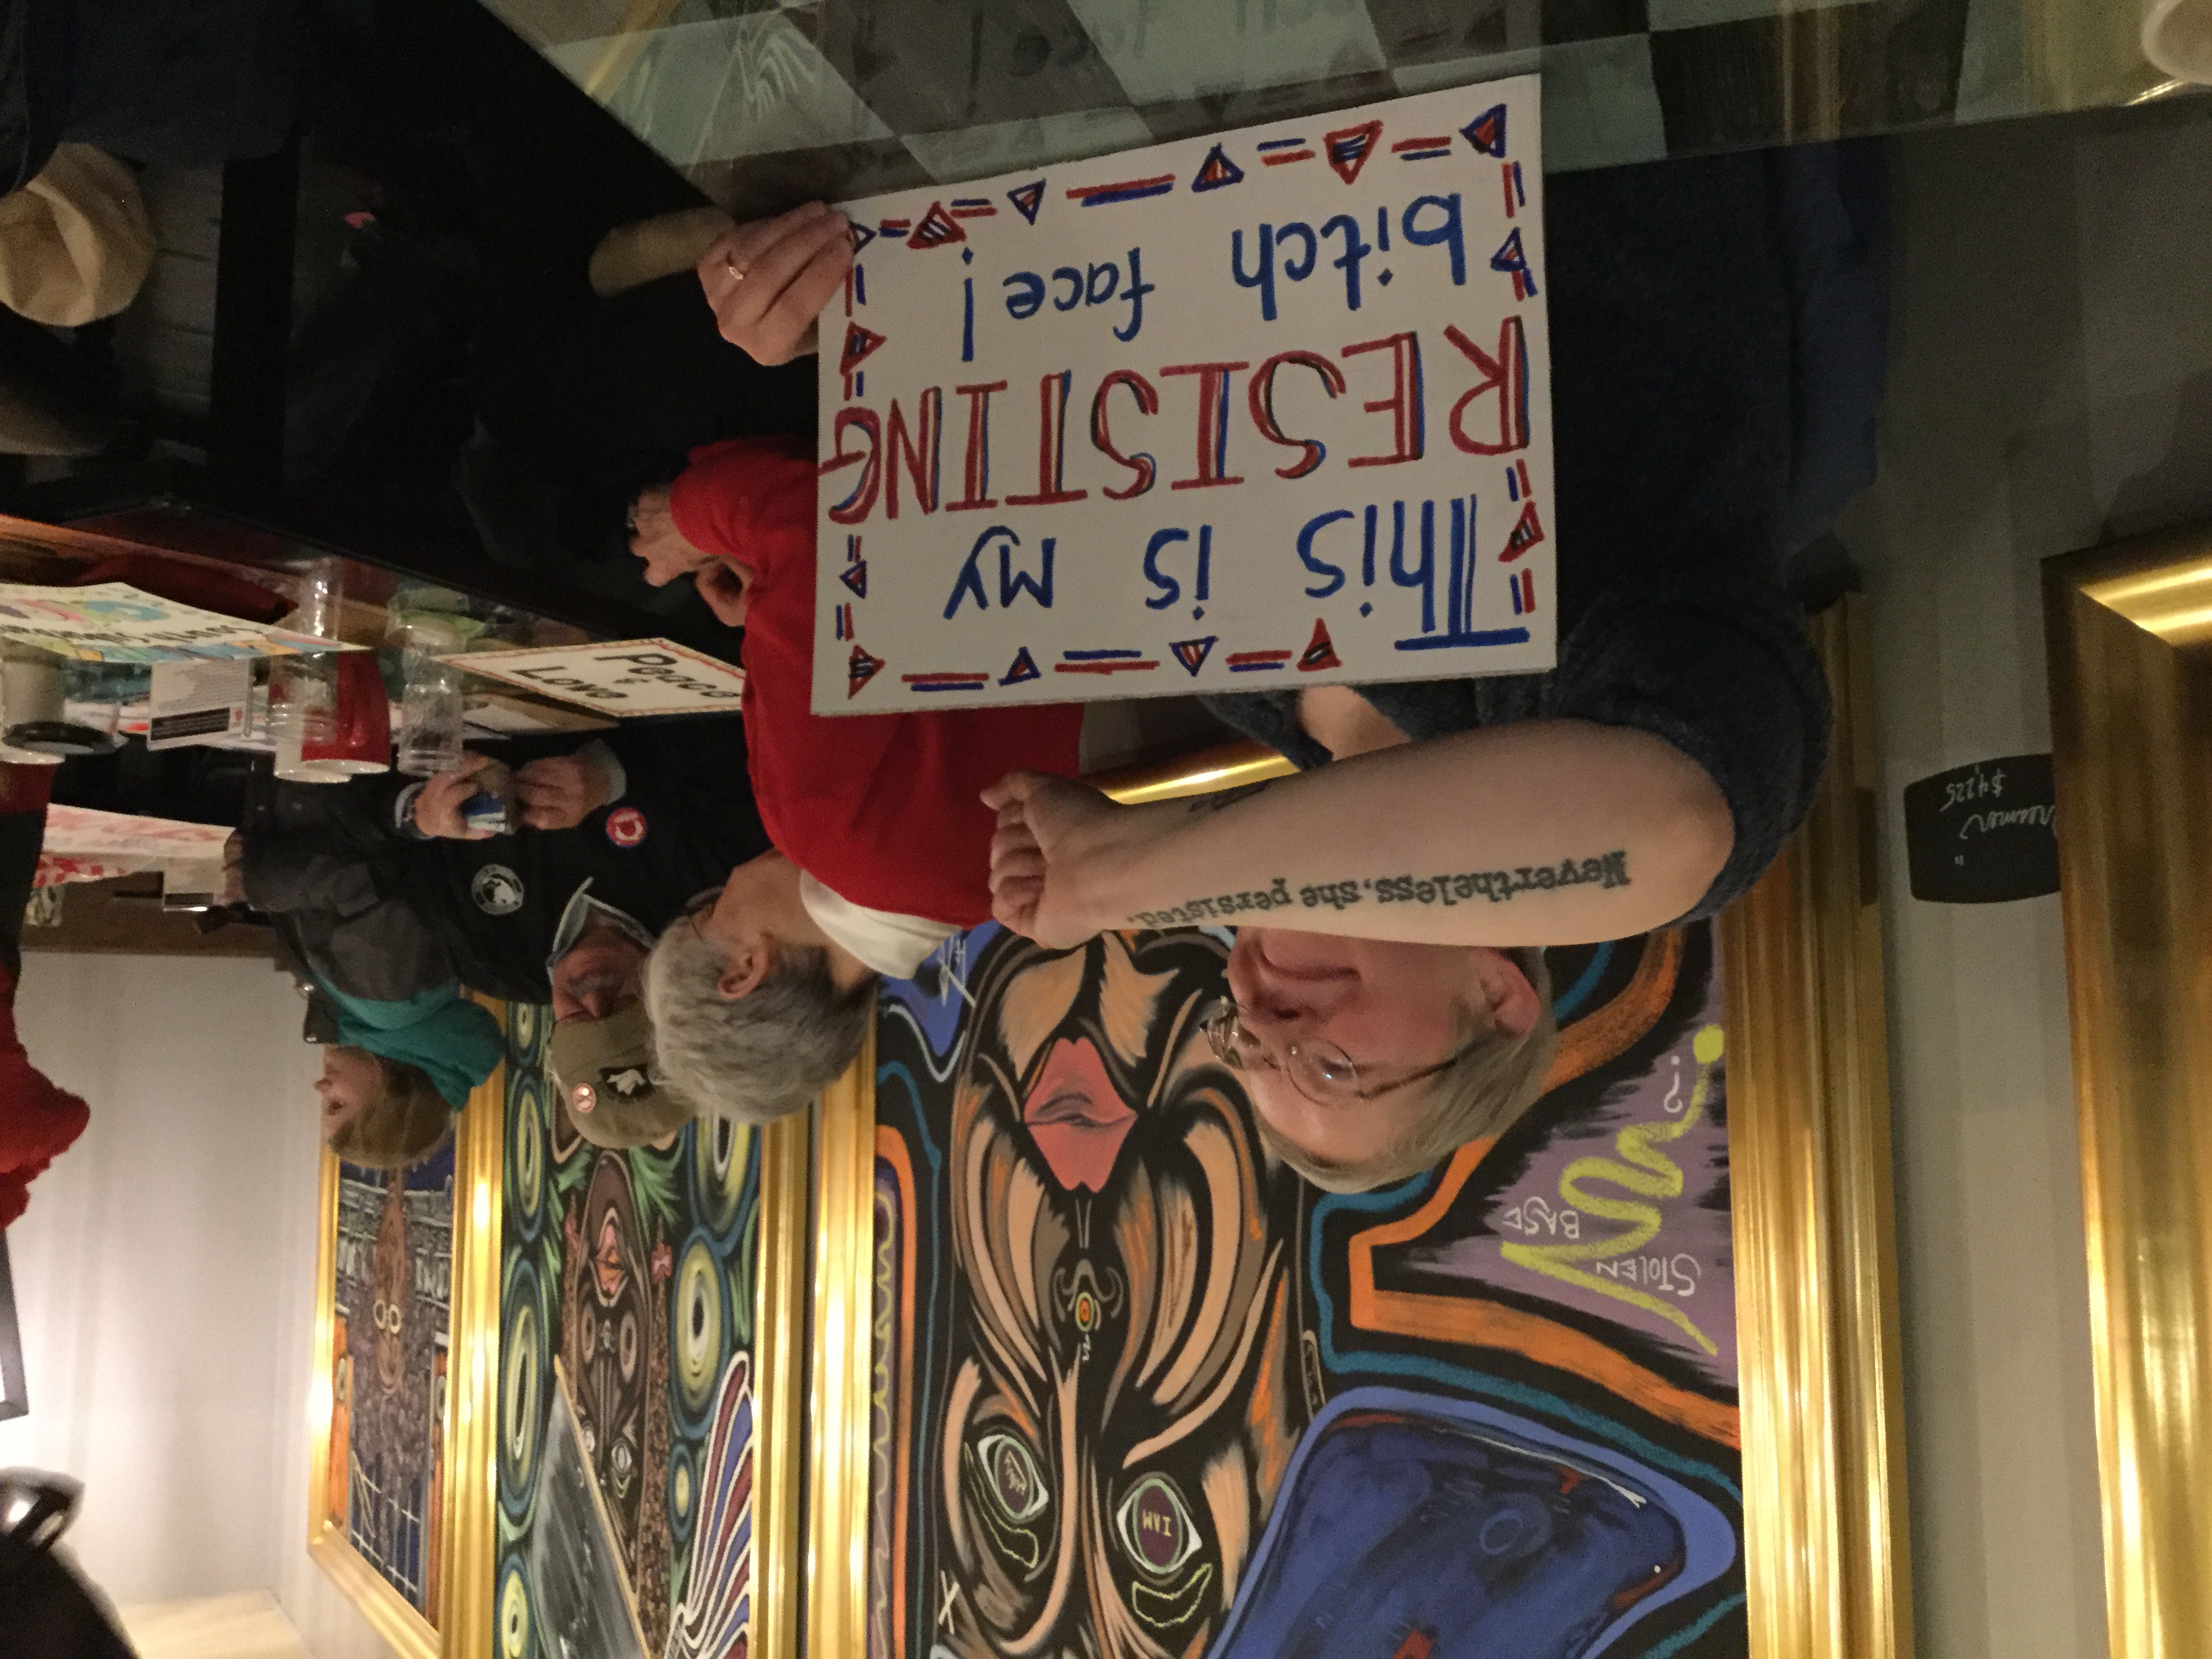 I AM
STOLEN
BASE
?
Nevertheless, she persisted.
Dreamer"
$4,225
This is my
RESISTING
bitch face!
Peace
&
Love